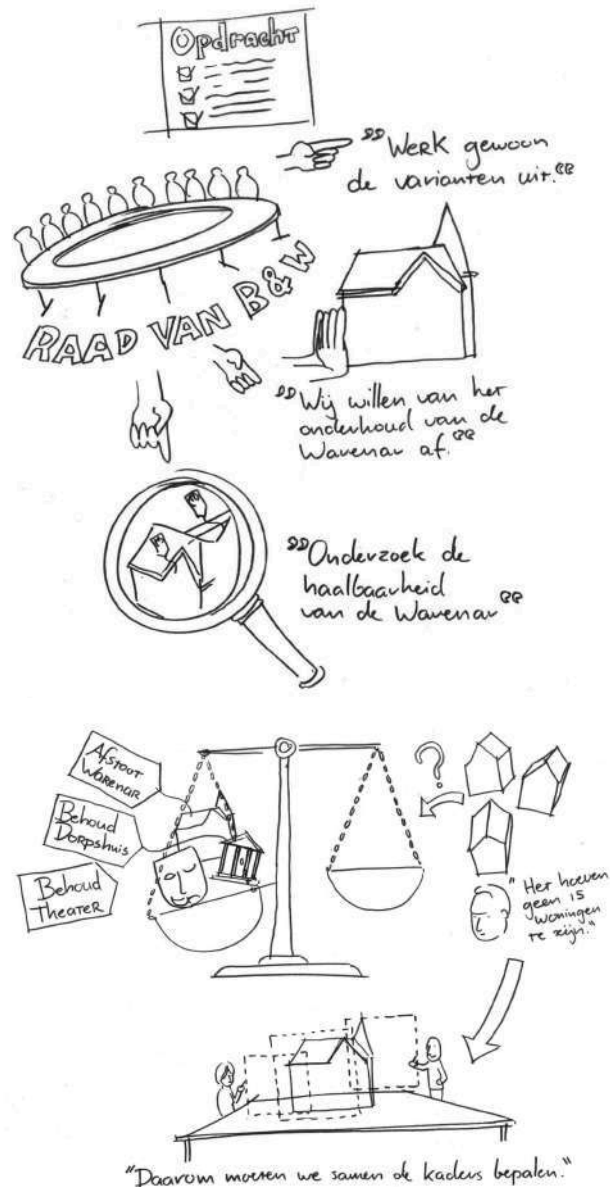 Opdracht
"Werk gewoon
de varianten uit."
RAAD VAN B&W
"Wij willen van het
onderhoud van de
Warenar af."
"Onderzoek de
haalbaarheid
van de Warenar"
Afstoot
Warenar
Behoud
Dorpshuis
Behoud
Theater
?
"Het hoeven
geen 15
woningen
te zijn."
"Daarom moeten we samen de kaders bepalen."